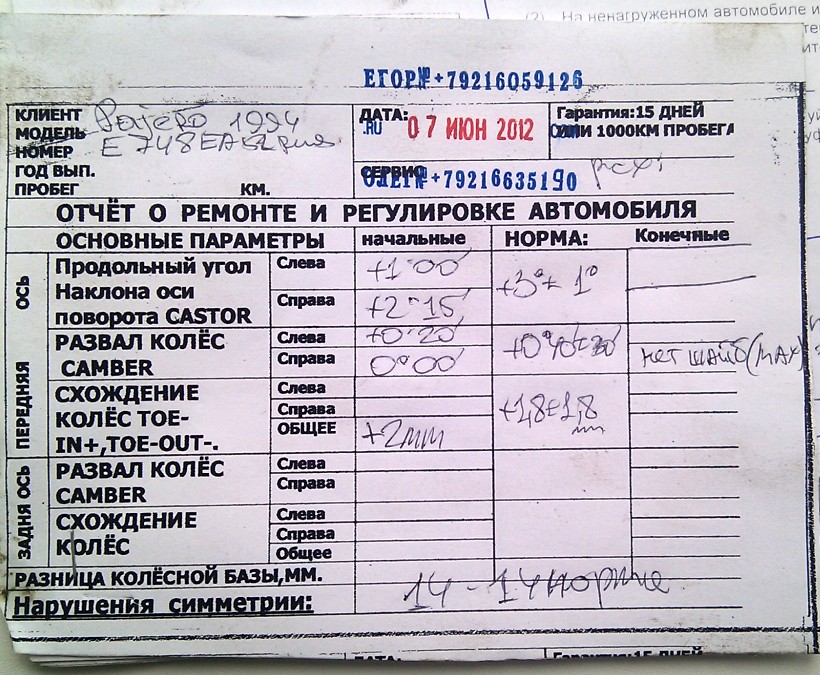 (2) На ненагруженном автомобиле и
ЕГОР№+79216059126
КЛИЕНТ
МОДЕЛЬ Pajero 1994
НОМЕР Е 748 ЕА
ГОД ВЫП.
ПРОБЕГ КМ.
ДАТА:
.RU 07 ИЮН 2012
Гарантия:15 ДНЕЙ
ИЛИ 1000КМ ПРОБЕГА
СЕРВИС
ОЛЕГ№+79216635190
ОТЧЁТ О РЕМОНТЕ И РЕГУЛИРОВКЕ АВТОМОБИЛЯ
ОСНОВНЫЕ ПАРАМЕТРЫ начальные НОРМА: Конечные
ПЕРЕДНЯЯ ОСЬ
Продольный угол Слева +1°00'
Наклона оси +3°± 1°
поворота CASTOR Справа +2°15'
РАЗВАЛ КОЛЁС Слева +0°20'
CAMBER Справа 0°00' +0°40'±30' нет шайб (MAX)
СХОЖДЕНИЕ Слева
КОЛЁС TOE- Справа +1,8±1,8 mm
IN+,TOE-OUT-. ОБЩЕЕ +2mm
ЗАДНЯ ОСЬ
РАЗВАЛ КОЛЁС Слева
CAMBER Справа
СХОЖДЕНИЕ Слева
КОЛЁС Справа
Общее
РАЗНИЦА КОЛЁСНОЙ БАЗЫ,ММ.
Нарушения симметрии: 14 - 14 норма
ДАТА:
Гарантия:15 ДНЕЙ